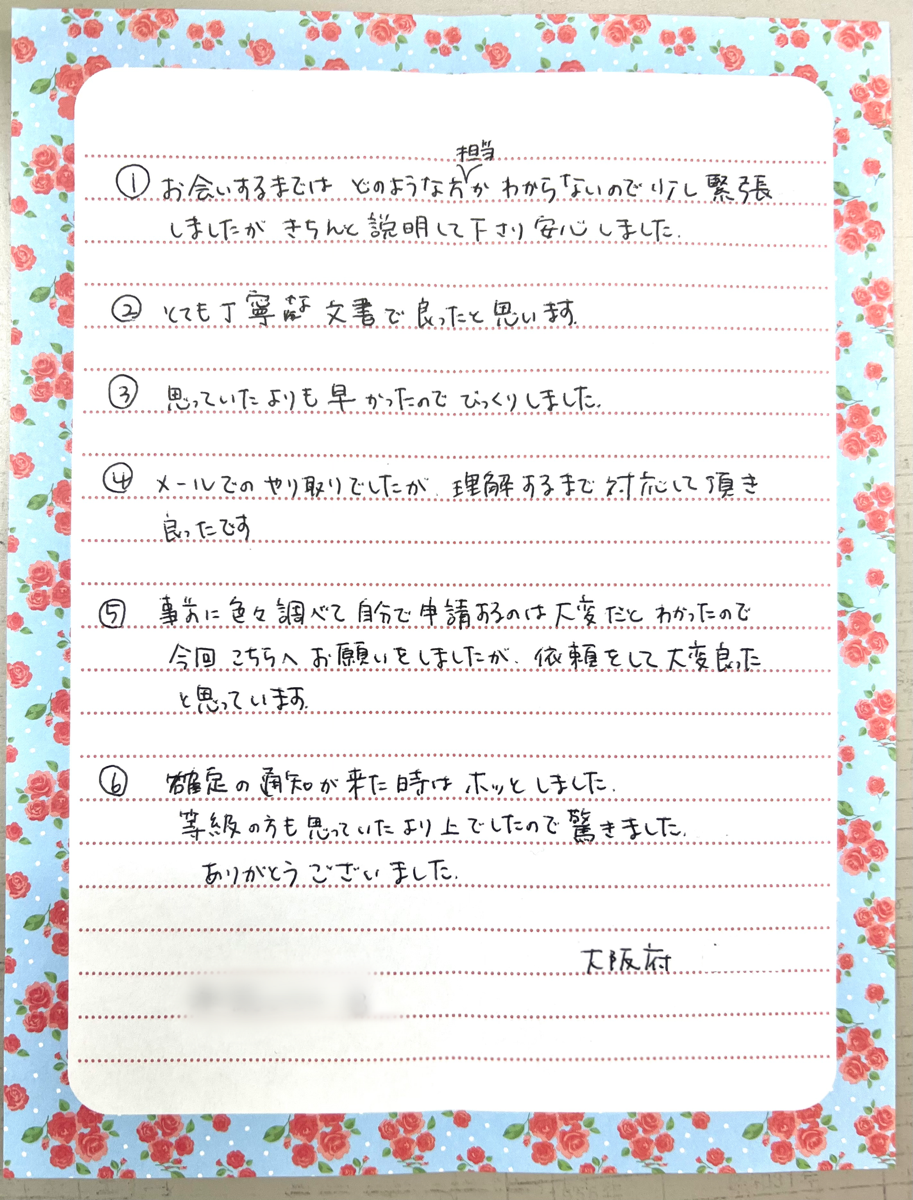 担当
① お会いするまでは どのような方か わからないので 少し 緊張
しましたが きちんと 説明して下さり 安心しました.
② とても丁寧な 文書で 良ったと思います.
③ 思っていたよりも 早かったので びっくりしました.
④ メールでのやり取りでしたが. 理解するまで 対応して頂き
良ったです
⑤ 事前に色々調べて 自分で申請するのは 大変だと わかったので
今回 こちらへ お願いをしましたが. 依頼をして 大変良った
と思っています.
⑥ 確定の通知が来た時は ホッとしました.
等級の方も思っていたより上でしたので 驚きました.
ありがとうございました.
大阪府